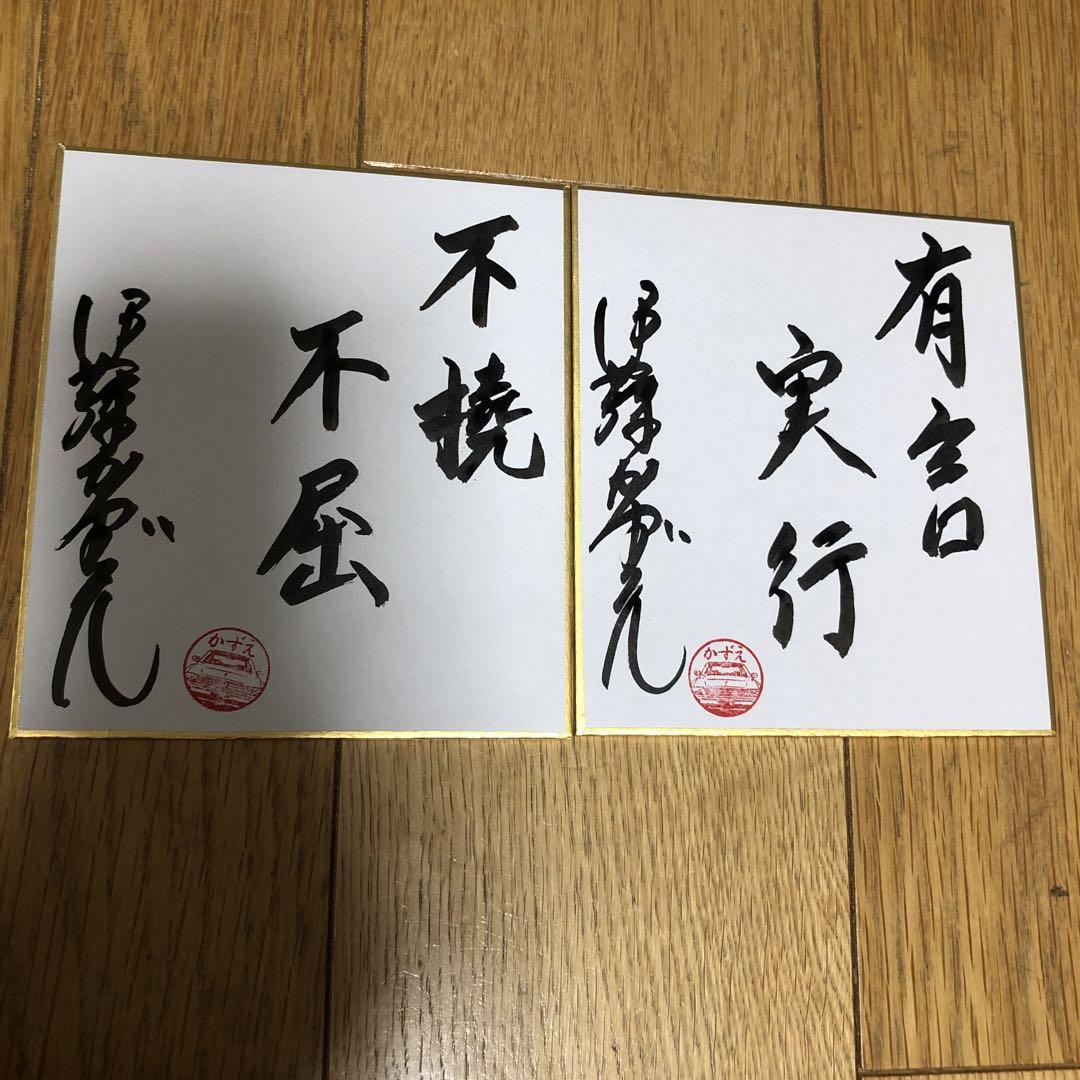 有言
実行
伊藤かずえ
かずえ
不撓
不屈
伊藤かずえ
かずえ